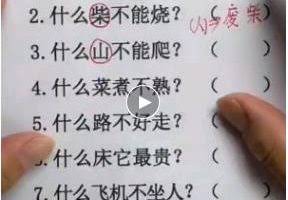 2.什么柴不能烧？（废柴）
3.什么山不能爬？（ ）
4.什么菜煮不熟？（ ）
5.什么路不好走？（ ）
6.什么床它最贵？（ ）
7.什么飞机不坐人？（ ）